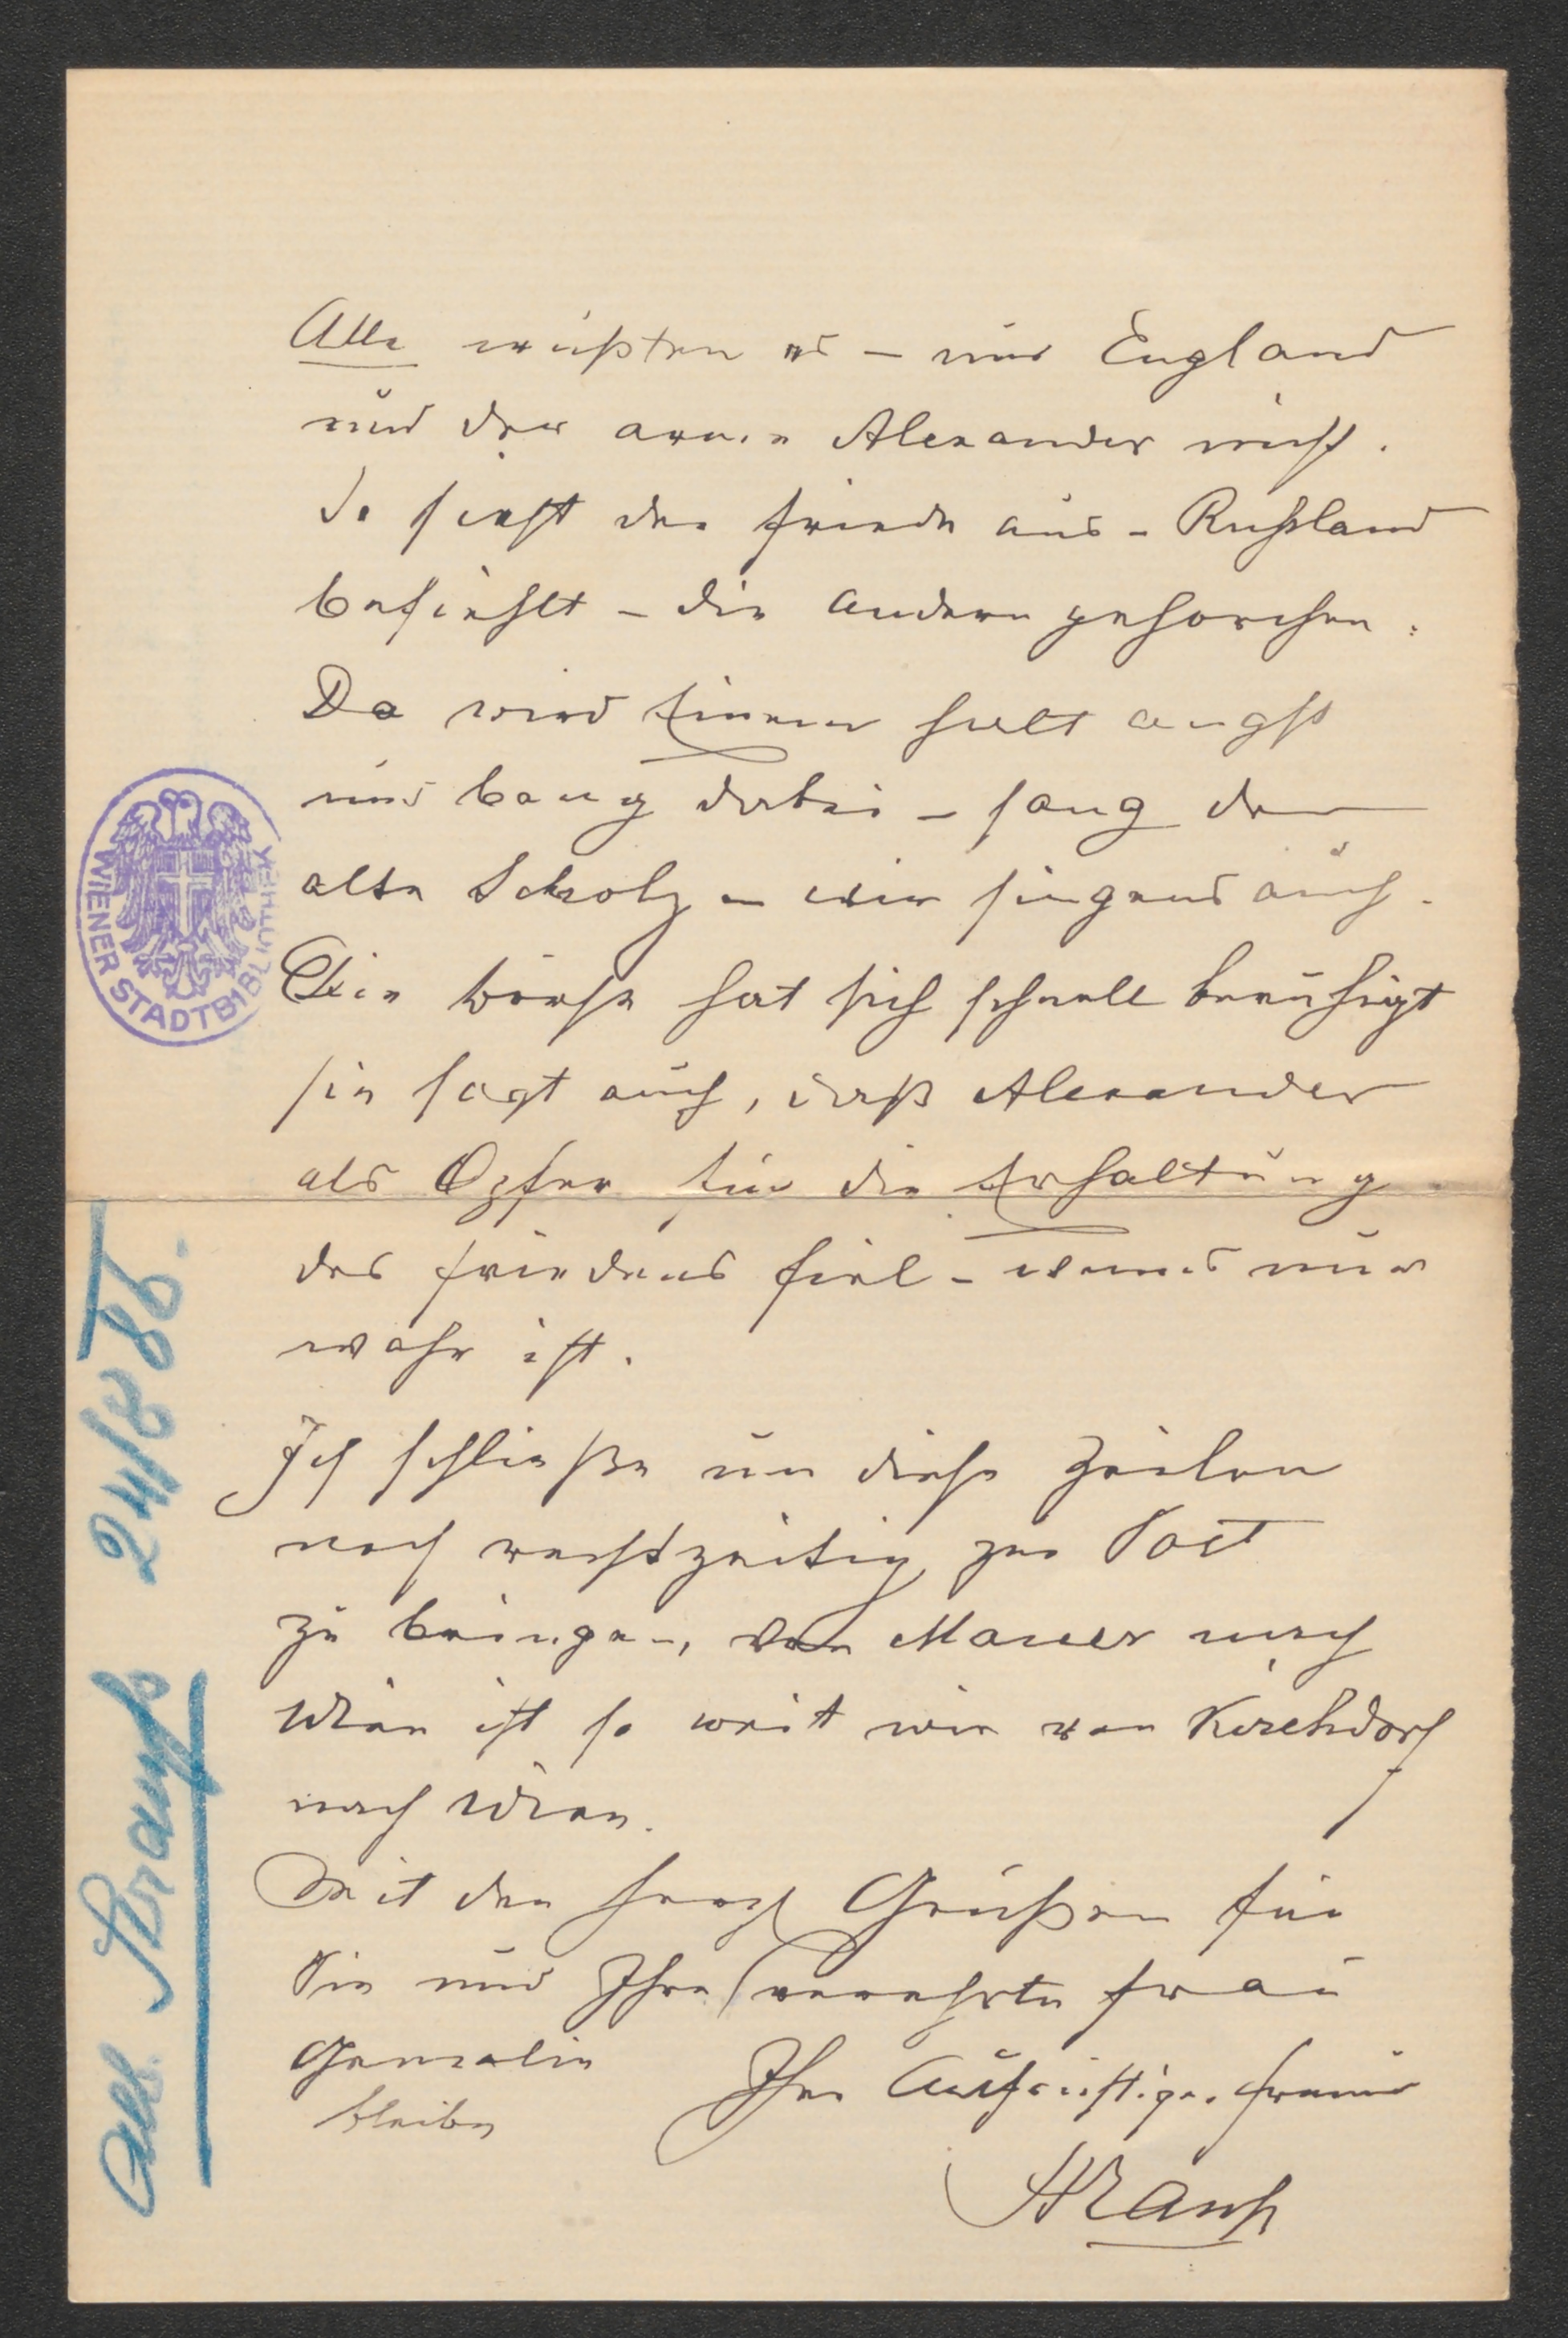 Alle wußten es – nur England
und der arme Alexander nicht.
So sieht der Friede aus – Rußland
befiehlt – die andern gehorchen.
Da wird Einem halt angst
und bang dabei – sang der
alte Scholz – wir singens auch.
Die Börse hat sich schnell beruhigt
sie sagt auch, daß Alexander
als Opfer für die Erhaltung
des Friedens fiel – wenns nur
wahr ist.
Ich schließe um diese Zeilen
noch rechtzeitig zur Post
zu bringen, von Mauer nach
Wien ist so weit wie von Kirchdorf
nach Wien.
Mit den herzl Grüßen für
Sie und Ihre verehrte Frau
Gemalin
bleibe
Ihr aufrichtiger Freund
Strauß
WIENER STADTBIBLIOTHEK
Alb. Strauß 24/8 86.